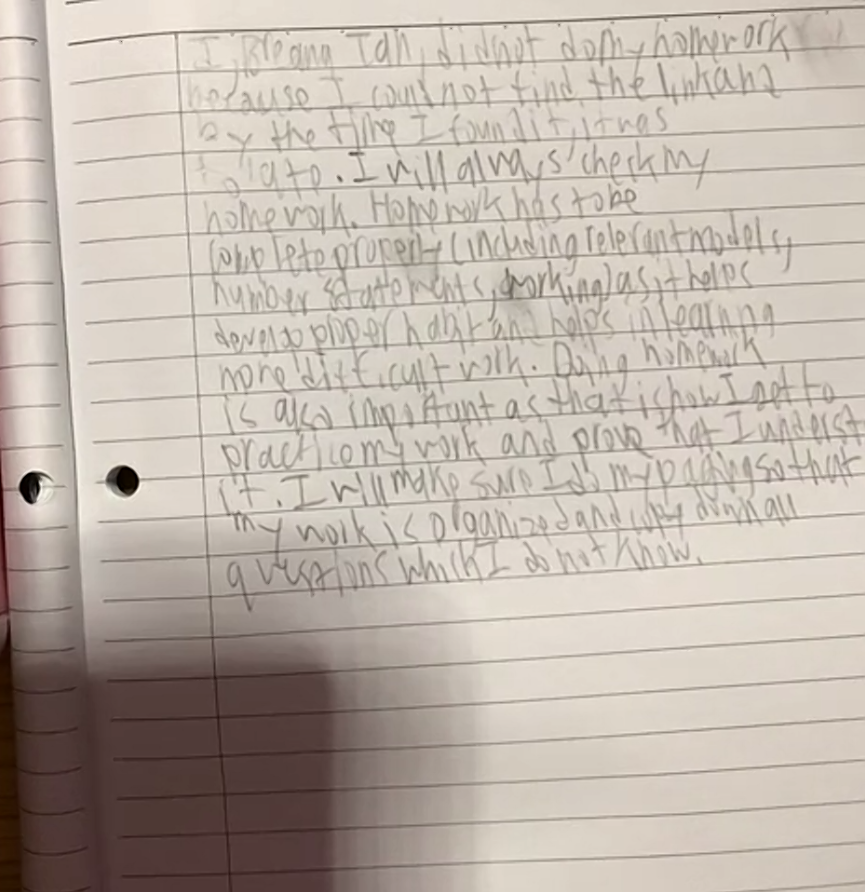 I, Tan, did not do my homework
because I could not find the link and
by the time I found it, it was
to late. I will always check my
homework. Homework has to be
complete properly (including relevant models,
number statements, working) as it helps
develop proper habit and helps in learning
more difficult work. Doing homework
is also important as that is how I get to
practice my work and prove that I underst
it. I will make sure I do my paging so that
my work is organized and down all
questions which I do not know.